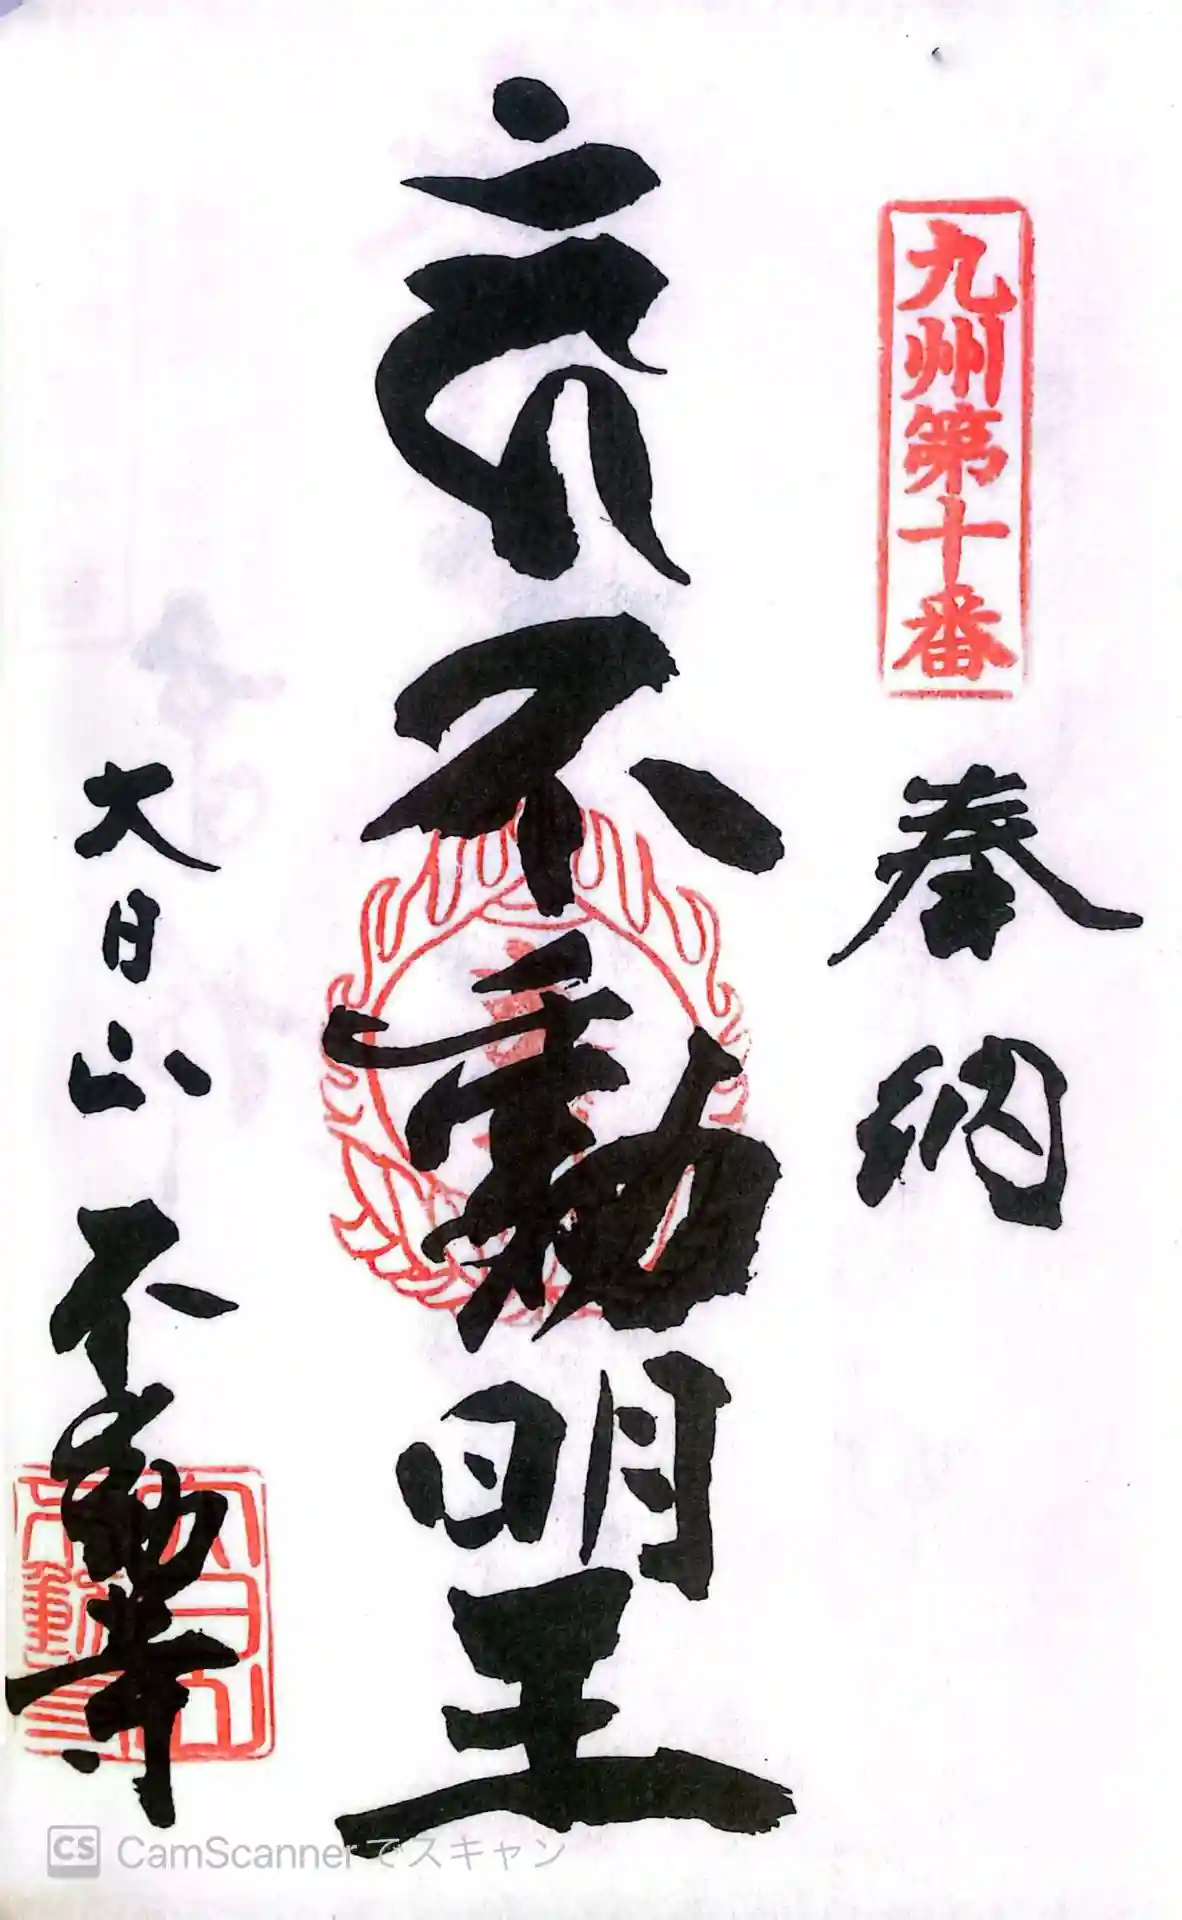 九州第十番
奉納
𑖮𑖯𑖽 不動明王
大日山 不動寺
大日山
不動寺
CS CamScannerでスキャン